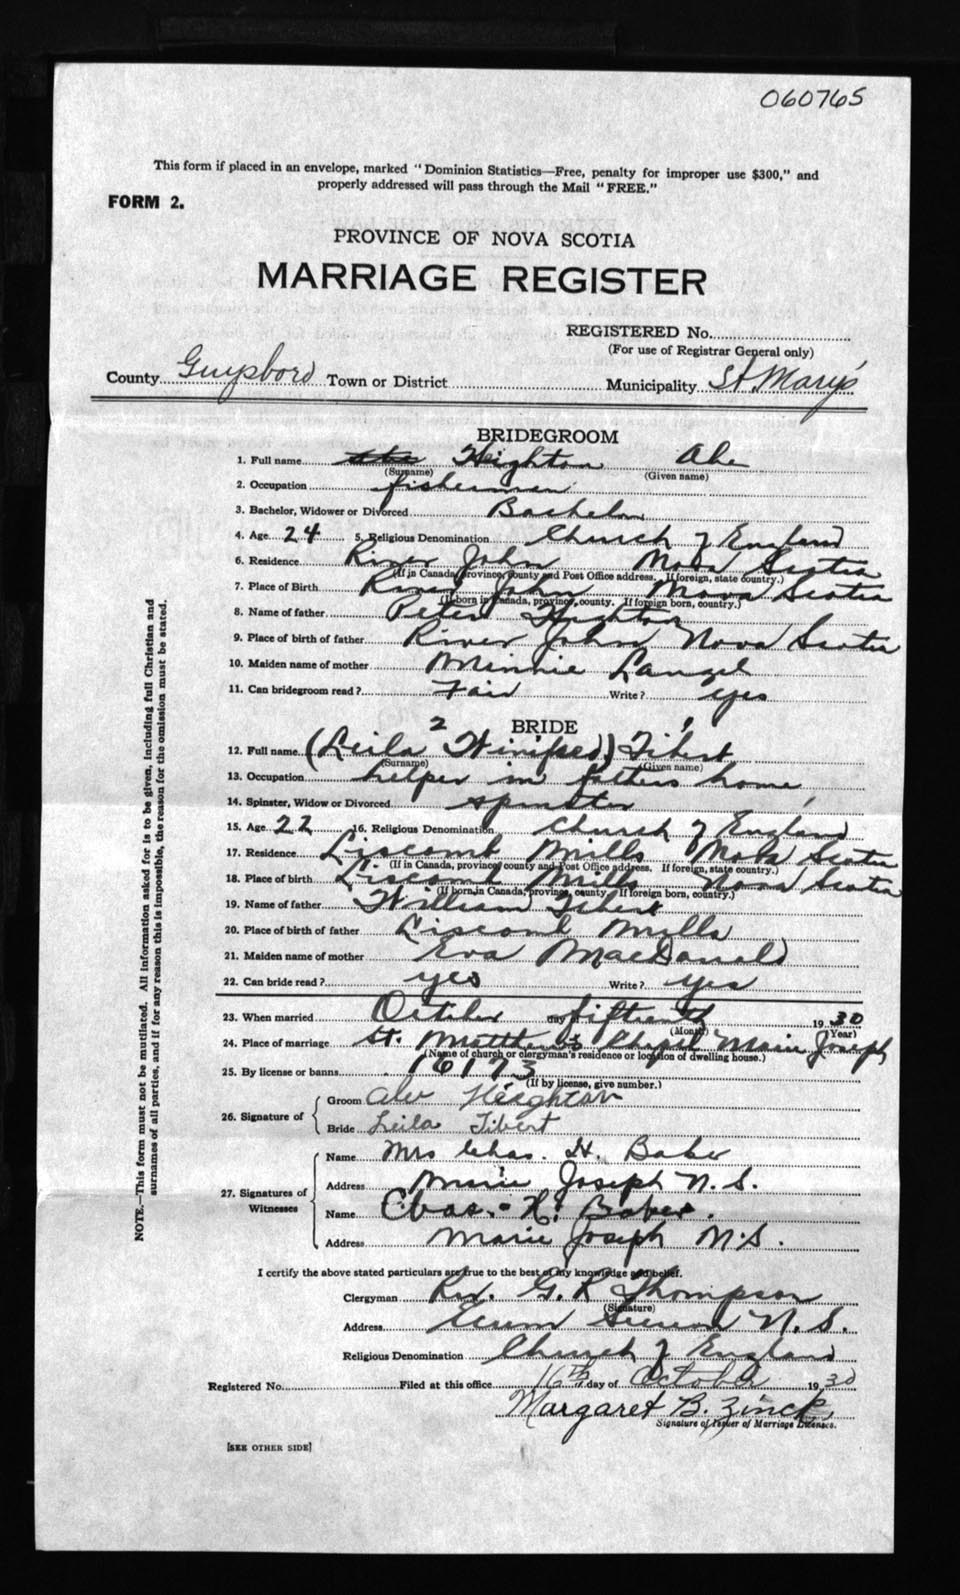 060765
This form if placed in an envelope, marked "Dominion Statistics—Free, penalty for improper use $300," and
properly addressed will pass through the Mail "FREE."
FORM 2.
PROVINCE OF NOVA SCOTIA
MARRIAGE REGISTER
REGISTERED No.
(For use of Registrar General only)
County Guysboro Town or District Municipality St. Mary's
BRIDEGROOM
1. Full name Heighton Abe
(Surname) (Given name)
2. Occupation fisherman
3. Bachelor, Widower or Divorced Bachelor
4. Age 24 5. Religious Denomination Church of England
6. Residence River John Nova Scotia
(If in Canada, province, county and Post Office address. If foreign, state country.)
7. Place of Birth River John Nova Scotia
(If born in Canada, province, county. If foreign born, country.)
8. Name of father Peter Heighton
9. Place of birth of father River John Nova Scotia
10. Maiden name of mother Minnie Langel
11. Can bridegroom read? Fair Write? yes
BRIDE
12. Full name (Leila 2 Winifred) 1 Tibert
(Surname) (Given name)
13. Occupation helper in fathers home
14. Spinster, Widow or Divorced spinster
15. Age 22 16. Religious Denomination Church of England
17. Residence Liscomb Mills Nova Scotia
(If in Canada, province, county and Post Office address. If foreign, state country.)
18. Place of birth Liscomb Mills Nova Scotia
(If born in Canada, province, county. If foreign born, country.)
19. Name of father William Tibert
20. Place of birth of father Liscomb Mills
21. Maiden name of mother Eva MacDonald
22. Can bride read? yes Write? yes
23. When married October day of fifteenth 1930
(Month) (Year)
24. Place of marriage St. Matthew's Chapel Marie Joseph
(Name of church or clergyman's residence or location of dwelling house.)
25. By license or banns 16173
(If by license, give number.)
26. Signature of
Groom Heighton
Bride Leila Tibert
27. Signatures of Witnesses
Name Mrs Chas. H. Baker
Address Marie Joseph N.S.
Name Chas. H. Baker.
Address Marie Joseph N.S.
I certify the above stated particulars are true to the best of my knowledge and belief.
Clergyman Rev. G. R Thompson
(Signature)
Address N.S.
Religious Denomination Church of England
Registered No. Filed at this office 16th day of October 1930
Margaret B. Zinck
Signature of Issuer of Marriage Licenses.
[SEE OTHER SIDE]
NOTE.—This form must not be mutilated. All information asked for is to be given, including full Christian and
surnames of all parties, and if for any reason this is impossible, the reason for the omission must be stated.